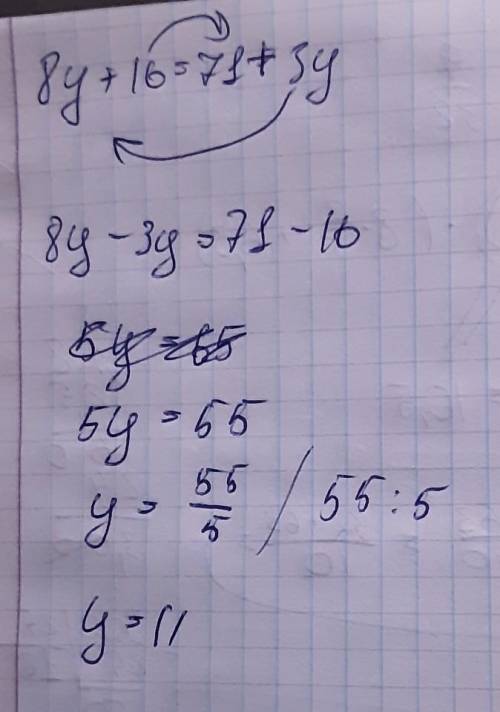 8y + 16 = 71 + 3y
8y - 3y = 71 - 16
5y = 65
5y = 55
y = 55/5 / 55 : 5
y = 11